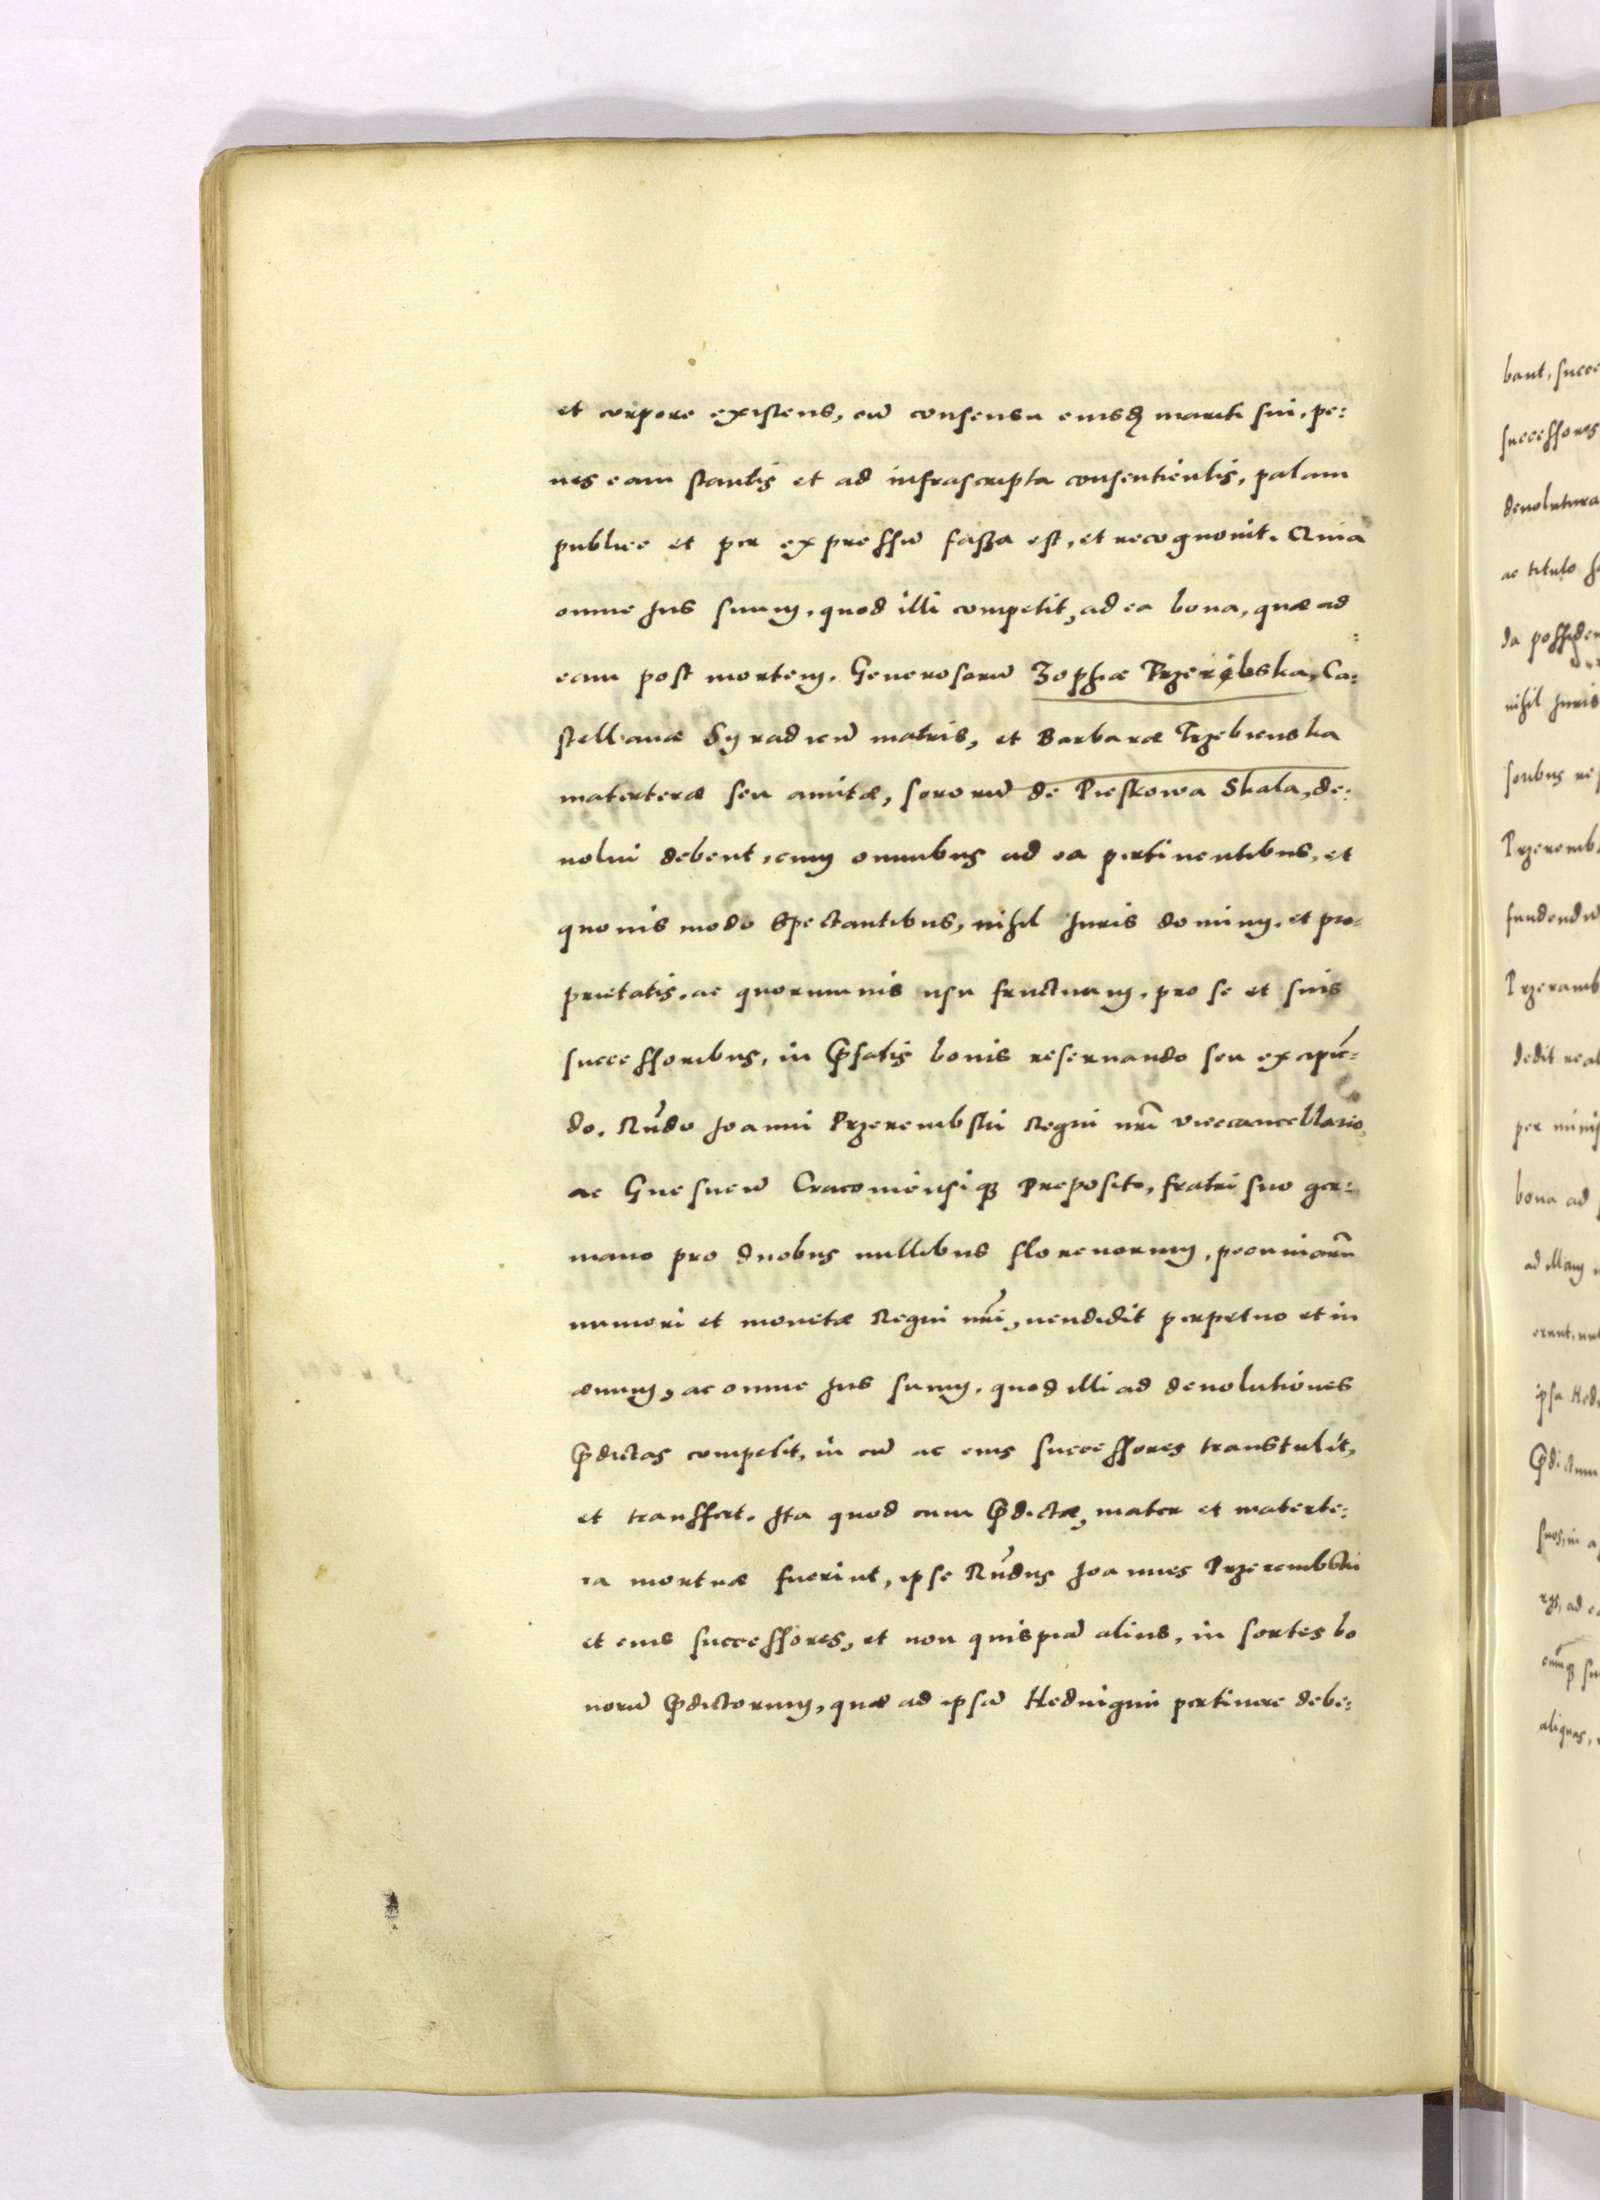 et corpore existens, cū consensu eiusdꝫ mariti sui, pe:
nes eam stantis et ad infrascripta consentientis, palam
publice et per expressū fassa est, et recognouit. Quia
omne Jus suum, quod illi competit, ad ea bona, quæ ad
eam post mortem, Generosarū Zophiæ Przerębska, Ca:
stellanæ Syradien̄ matris, et Barbaræ Trzebienska
materteræ seu amitæ, sororū de Pieskowa Skala, de:
uolui debent, cum omnibus ad ea pertinentibus, et
quouis modo Spectantibus, nihil Juris dominij, et pro:
prietatis, ac quorumuis usu fructuum, pro se et suis
successoribus, in p̄fatis bonis reseruando seu excipiē:
do. Rn̄do Joanni Przerembski Regni nr̄i vicecancellario,
ac Gnesnen̄ Cracouiensiqꝫ Preposito, fratri suo ger:
mano pro duobus millibus florenorum, pecuniarū
numeri et monetæ Regni nr̄i, uendidit perpetuo et in
æuum, ac omne Jus suum, quod illi ad deuolutiones
p̄dictas competit, in eū ac eius successores transtulit,
et transfert. Ita quod cum p̄dictæ, mater et materte:
ra mortuæ fuerint, ipse Rn̄dus Joannes Przerembski
et eius successores, et non quispiā alius, in sortes bo
norū p̄dictorum, quæ ad ipsā Heduigim pertinere debe:
bant, succe
successores
deuolutura
ac titulo
da possiden
nihil Juris
Przeremb
fundendū
Przeremb
dedit real
per minis
bona ad
ad illam
ipsa Hed
p̄dictum
suos, in
aliquas,